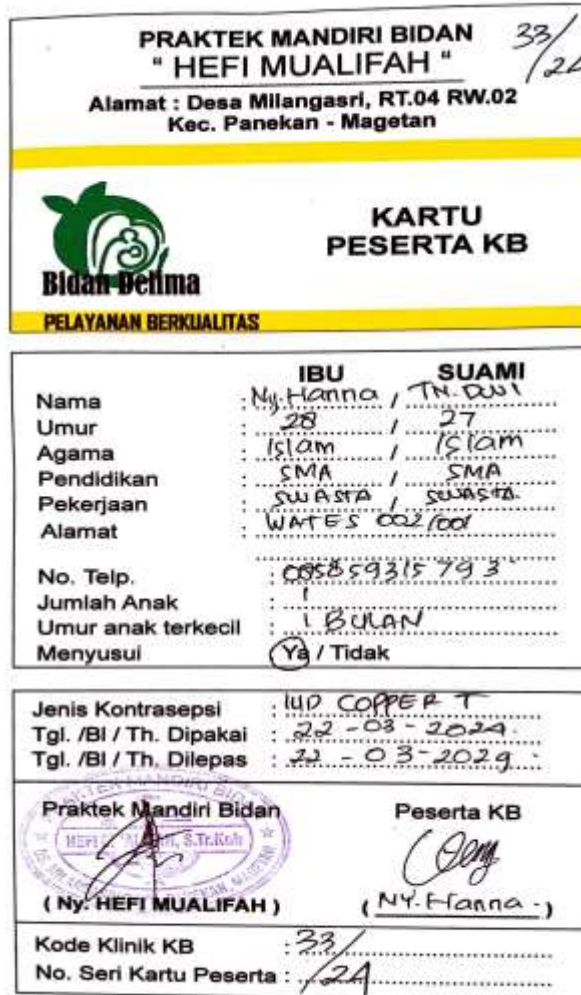 PRAKTEK MANDIRI BIDAN
" HEFI MUALIFAH "
33/24
Alamat : Desa Milangasri, RT.04 RW.02
Kec. Panekan - Magetan
Bidan Delima
PELAYANAN BERKUALITAS
KARTU
PESERTA KB
IBU SUAMI
Nama : Ny. Hanna / TN. DWI
Umur : 28 / 27
Agama : Islam / Islam
Pendidikan : SMA / SMA
Pekerjaan : SWASTA / SWASTA
Alamat : WATES 002/001
No. Telp. :
Jumlah Anak : 1
Umur anak terkecil : 1 BULAN
Menyusui Ya / Tidak
Jenis Kontrasepsi : IUD COPPER T
Tgl. /Bl / Th. Dipakai : 22 - 03 - 2024
Tgl. /Bl / Th. Dilepas : 22 - 03 - 2029
Praktek Mandiri Bidan Peserta KB
S.Tr.Keb
( Ny. HEFI MUALIFAH ) ( NY. Hanna )
Kode Klinik KB : 33/
No. Seri Kartu Peserta : /24